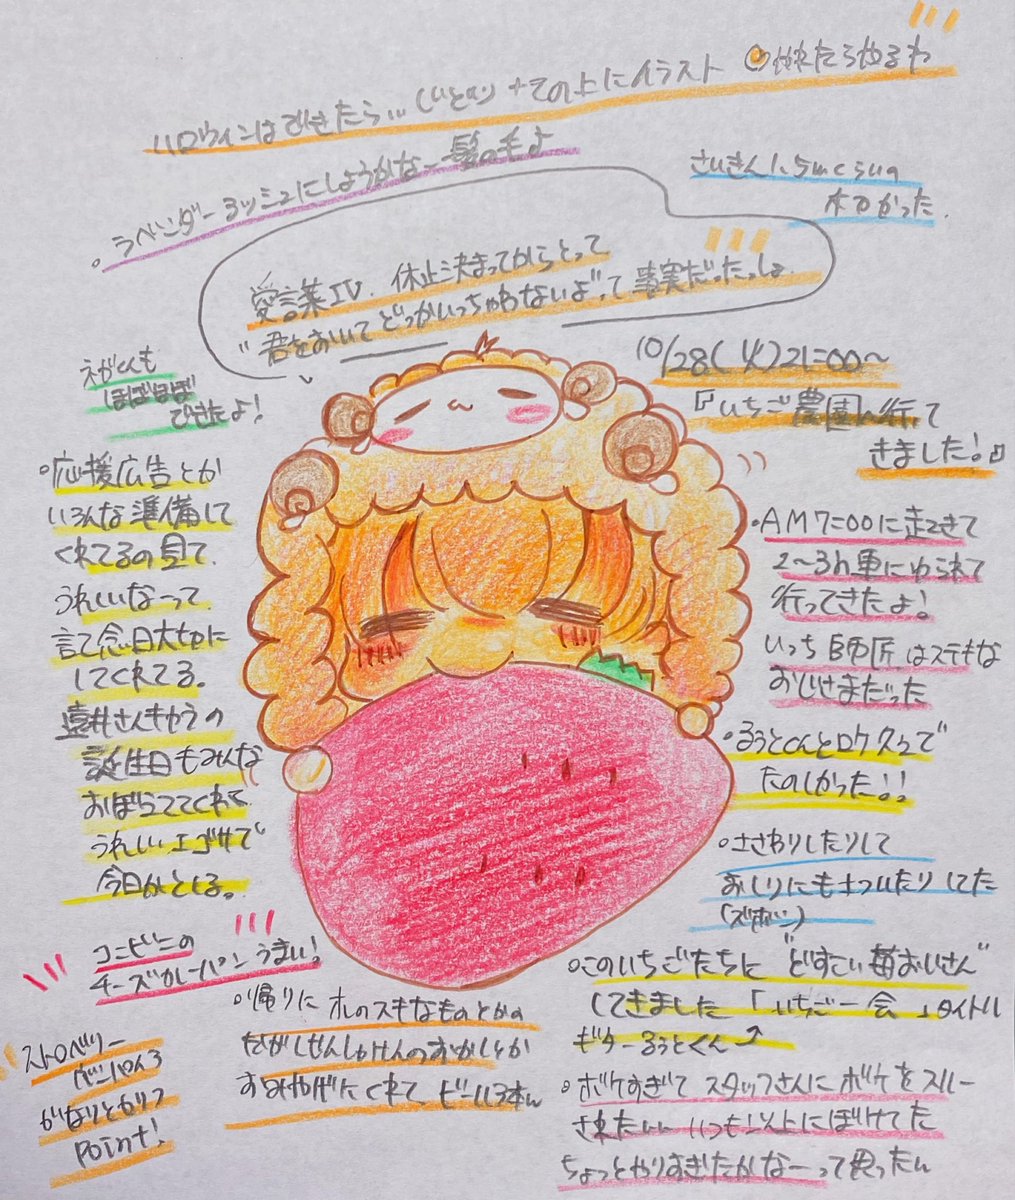 ハロウィンはできたら… +その上にイラスト 出来たらやるわ
。ラベンダーアッシュにしようかなー髪の毛よ
さいきん1、5mくらいの
木刀かった
愛言葉IV、休止決まってからとって
"君をおいてどっかいっちゃわないよ"って事実だったっしょ
えがくんも
ほぼほぼ
できたよ!
10/28(火)21:00〜
『いちご農園へ行って
きました!』
。応援広告とか
いろんな準備して
くれてるの見て、
うれしいなーって
記念日大切に
してくれてる。
遠井さんきゅうの
誕生日もみんな
おぼえててくれて
うれしいエゴサで
今日から
。AM7:00に起きて
2〜3h車にゆられて
行ってきたよ!
いっち師匠はステキな
おじさまだった
。るぅとくんとロケ久々で
たのしかった!!
。さわりしたりして
おしりにも土ついたりしてた
コンビニの
チーズカレーパンうまい!
。このいちごたちに"どすこい苺おじさん"
してきました「いちご一会」タイトル
ギターるぅとくん
。帰りにオレのスキなものとかの
だがしせんしゅけんのおかしとか
おみやげにくれて、ビール3本
ストロベリー
がなりとかリフ
point!
。ボケすぎてスタッフさんにボケをスルー
されたしいつも以上にぼけてた
ちょっとやりすぎたかなーって思ったん